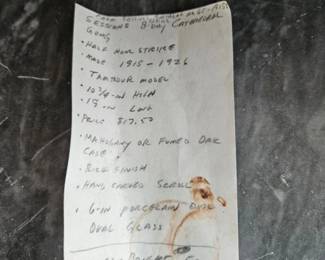 Sessions 8-Day Cathedral
Gong
• Half Hour Strike
• Made 1915-1926
• Tambour Model
• 10 3/4-in High
• 19-in Long
• Price $17.50
• Mahogany or Fumed Oak
Case
• Rich Finish
• Hand Carved Scroll
• 6-in Porcelain Dial
Oval Glass